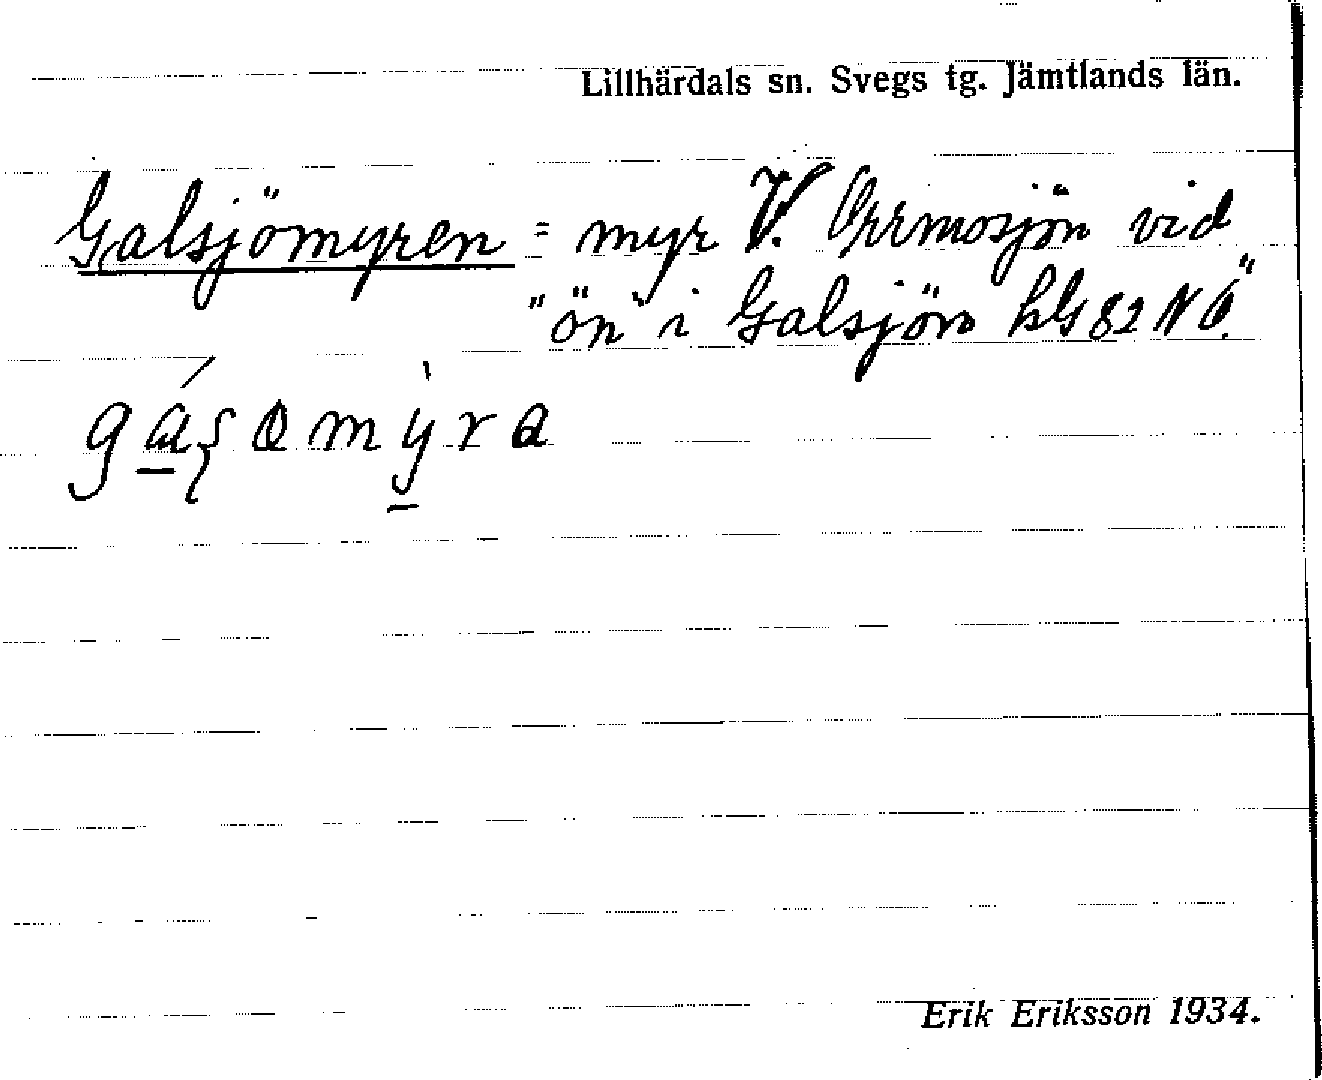 Lillhärdals sn. Svegs tg. Jämtlands län.
Galsjömyren = myr V. Orrmosjön vid
"ön" i Galsjön hG 82 NÖ."
Erik Eriksson 1934.